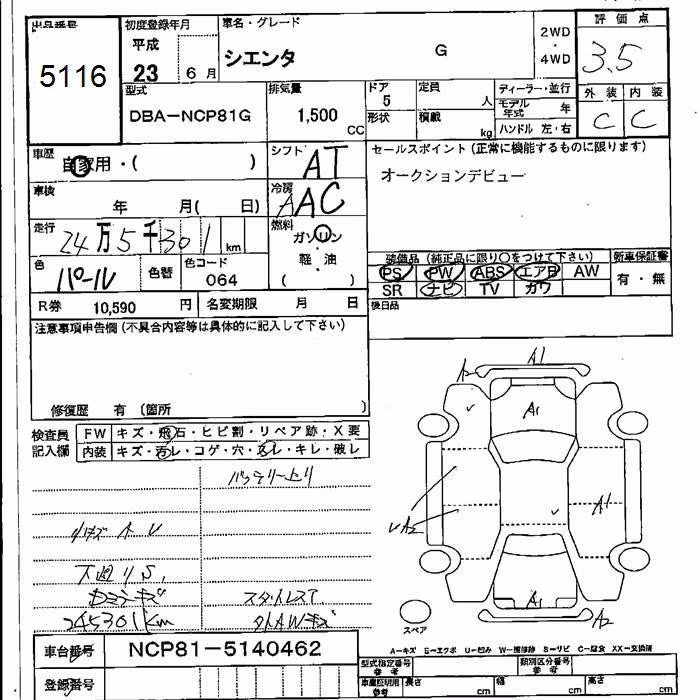 出品番号
5116
初度登録年月
平成
23 6月
車名・グレード
シエンタ G
2WD
・
4WD
評価点
3.5
外装 内装
C C
型式
DBA-NCP81G
排気量
1,500 CC
ドア
5
形状
定員 人
積載 kg
ディーラー・並行
モデル年式 年
ハンドル 左・右
車歴
自家用・( )
シフト
AT
セールスポイント (正常に機能するものに限ります)
オークションデビュー
車検
年 月( 日)
冷房
AAC
走行
24万5千301 km
燃料
ガソリン
・
軽・油
( )
色
パール
色替
色コード
064
装備品 (純正品に限り〇をつけて下さい)
新車保証書
PS PW ABS エアB AW
SR ナビ TV カワ
有・無
R券 10,590 名変期限 月 日
後日品
注意事項申告欄 (不具合内容等は具体的に記入して下さい)
修復歴 有 (箇所 )
検査員
記入欄
FW キズ・飛石・ヒビ割・リペア跡・X要
内装 キズ・汚レ・コゲ・穴・スレ・キレ・破レ
バッテリー上り
小キズ A U
下廻りS,
245301km
スタットレス
外AWキズ
A1
A2
A1
A1
UA2
A1
A2
スペア
A-キズ E-エクボ U-凹み W-補修跡 S-サビ C-腐食 XX-交換済
車台番号 NCP81-5140462
登録番号
型式指定番号
参考
類別区分番号
参考
車庫証明用
参考
長さ cm 幅 cm 高さ cm